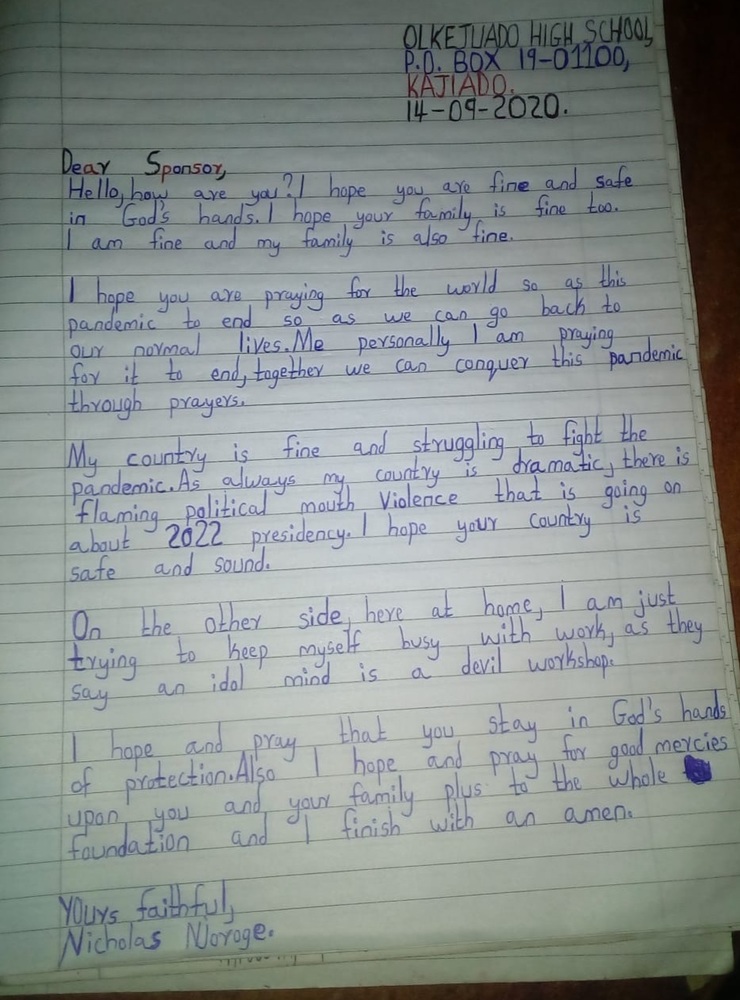 OLKEJUADO HIGH SCHOOL,
P.O. BOX 19-01100,
KAJIADO.
14-09-2020.
Dear Sponsor,
Hello, how are you? I hope you are fine and safe
in God's hands. I hope your family is fine too.
I am fine and my family is also fine.
I hope you are praying for the world so as this
pandemic to end so as we can go back to
our normal lives. Me personally I am praying
for it to end, together we can conquer this pandemic
through prayers.
My country is fine and struggling to fight the
pandemic. As always my country is dramatic, there is
flaming political mouth violence that is going on
about 2022 presidency. I hope your country is
safe and sound.
On the other side, here at home, I am just
trying to keep myself busy with work, as they
say an idol mind is a devil workshop.
I hope and pray that you stay in God's hands
of protection. Also I hope and pray for good mercies
upon you and your family plus to the whole
foundation and I finish with an amen.
Yours faithful,
Nicholas Njoroge.